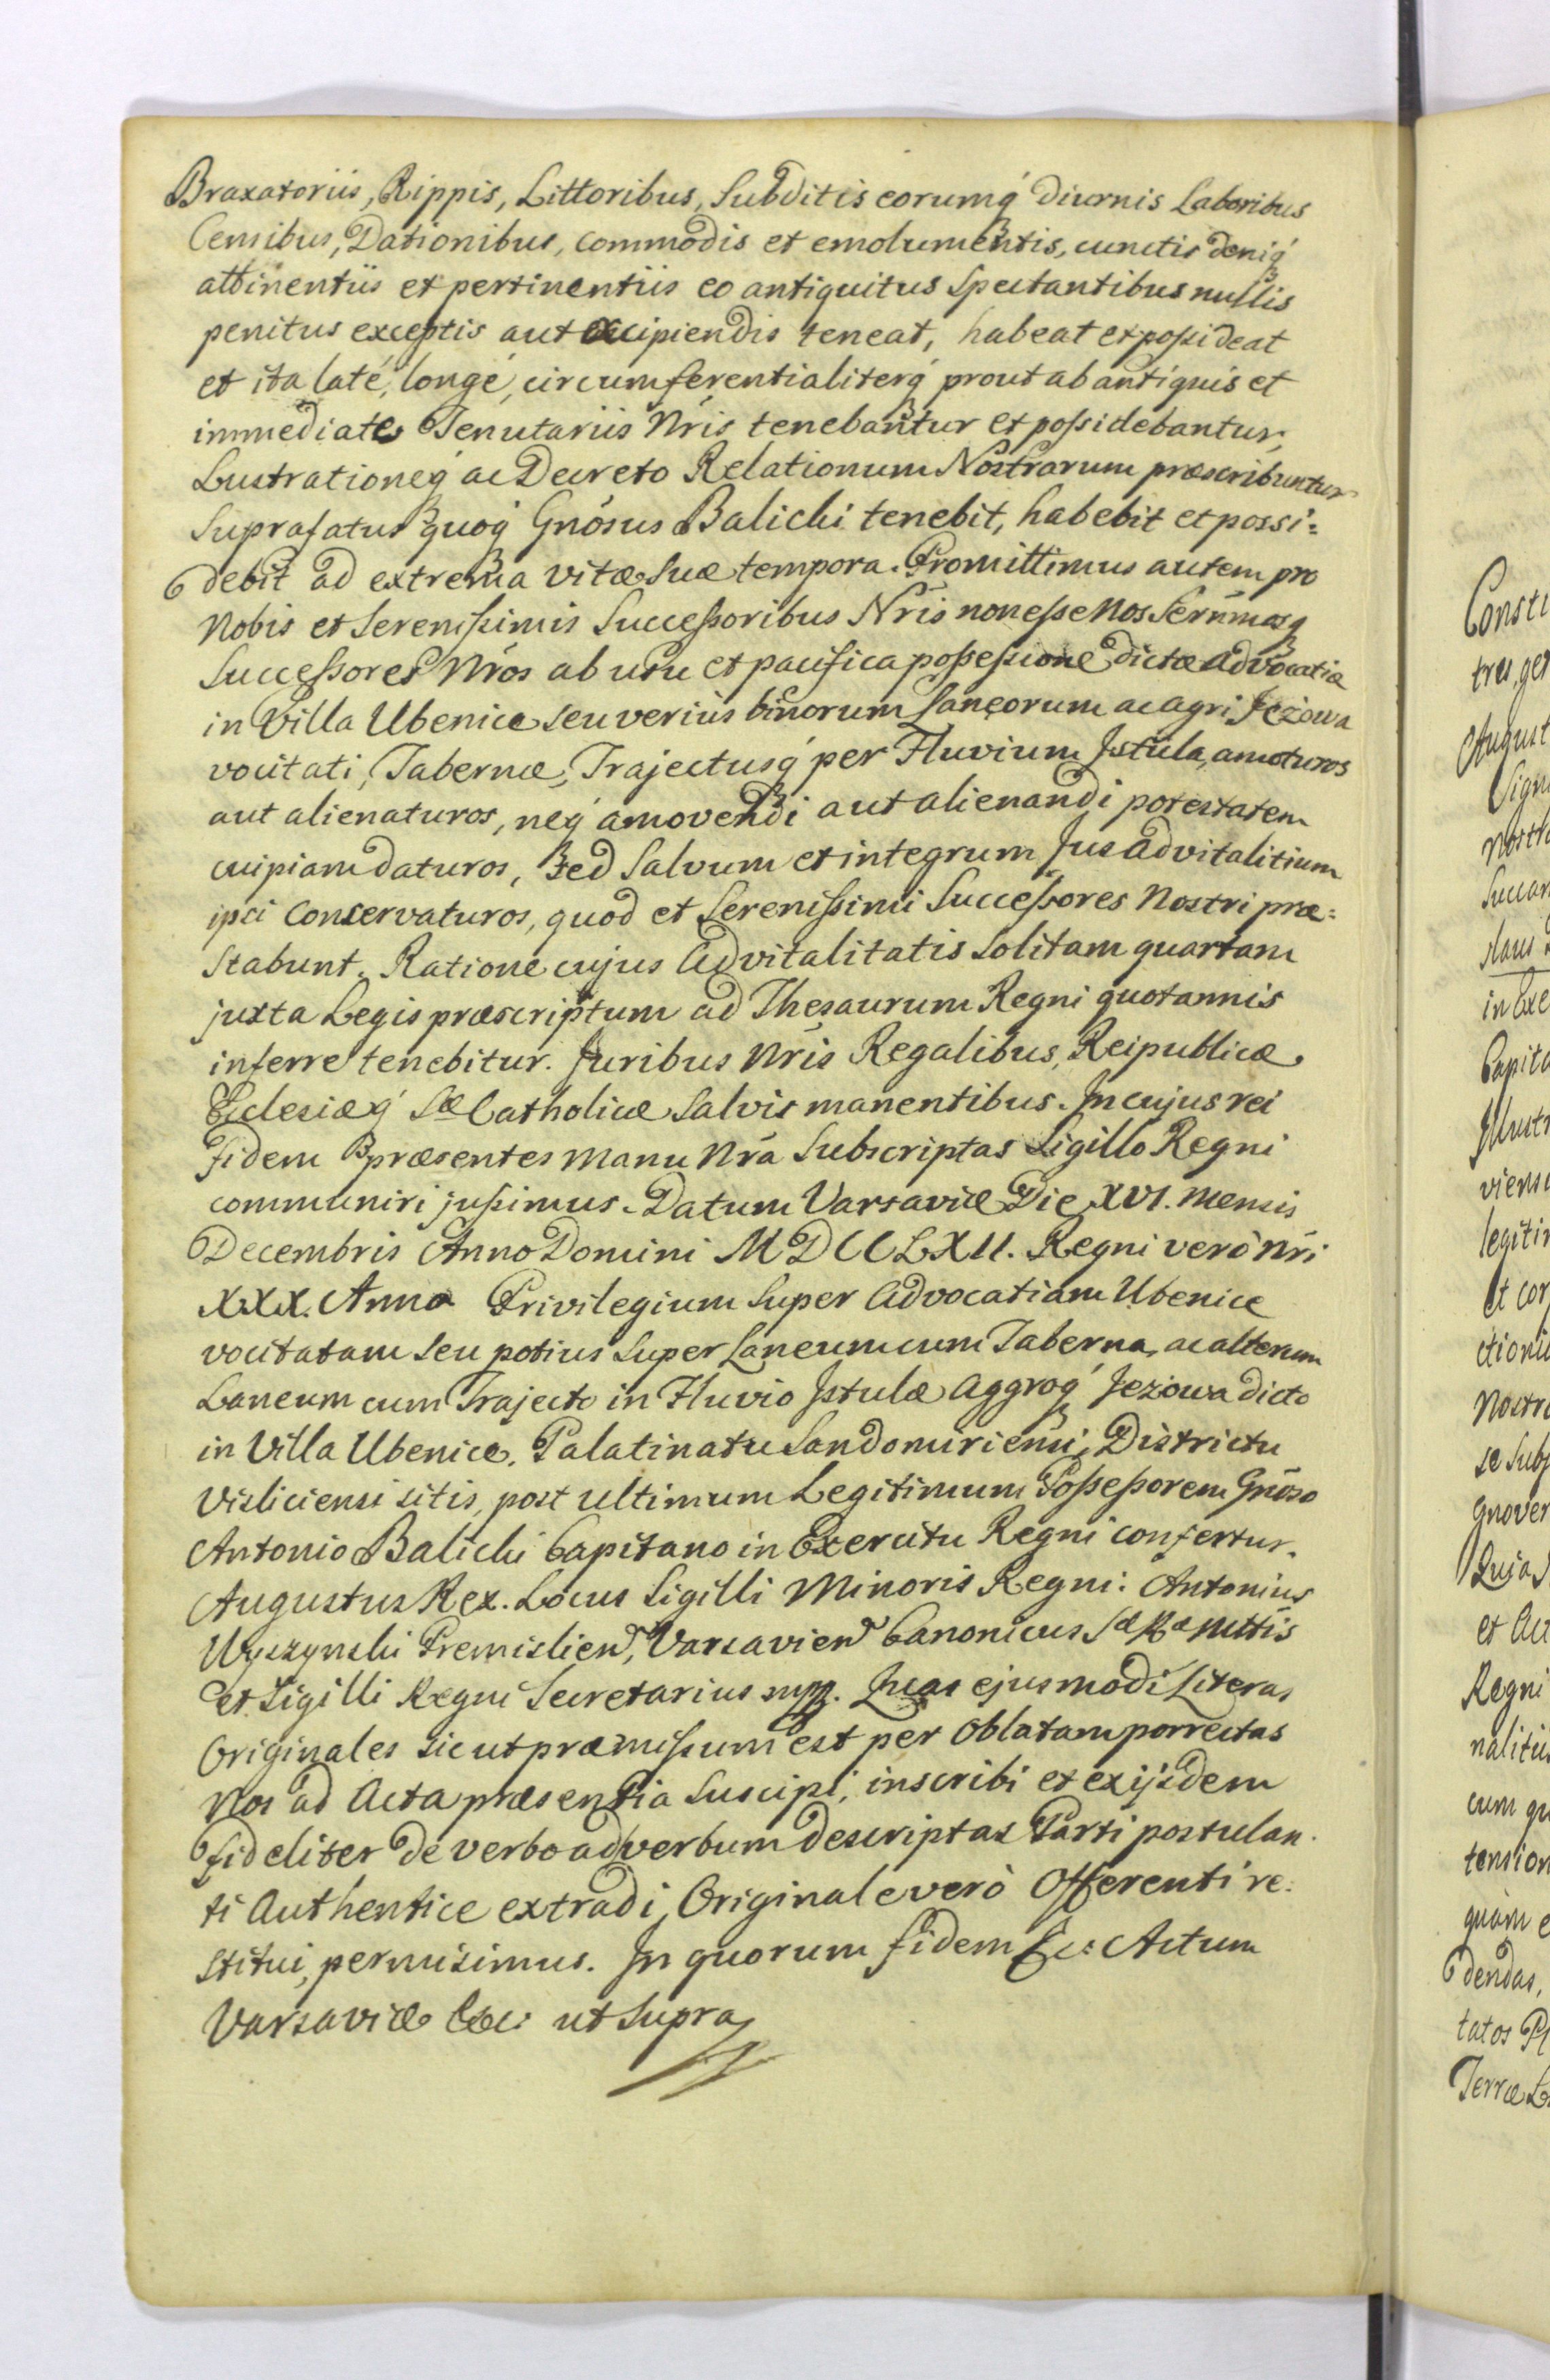 Braxatoriis, Rippis, Littoribus, Subditis eorumq́ diurnis Laboribus
Censibus, Dationibus, commodis et emolumentis, cunctis deniq́
attinentiis et pertinentiis eo antiquitus spectantibus nullis
penitus exceptis aut excipiendis teneat, habeat et possideat
et ita laté, longé, circumferentialiterq́ prout ab antiquis et
immediate Tenutariis Nris tenebantur et possidebantur,
Lustrationeq́ ac Decreto Relationum Nostrarum præscribuntur
Suprafatus quoq́ Gnosus Balicki tenebit, habebit et possi=
debit ad extrema vitæ suæ tempora. Promittimus autem pro
Nobis et Serenissimis Successoribus Nris non esse Nos Sernmosq
Successores Nros ab usu et pacifica possessione dictæ advocatiæ
in Villa Ubenice seu verius binorum Laneorum ac agri Jeżowa
vocitati, Tabernæ, Trajectusq́ per Fluvium Jstula, amoturos
aut alienaturos, neq́ amovendi aut alienandi potestatem
cuipiam daturos, sed Salvum et integrum Jus advitalitium
ipsi conservaturos, quod et Serenissimi Successores Nostri præ=
stabunt. Ratione cujus Advitalitatis solitam quartam
juxta Legis præscriptum ad Thesaurum Regni quotannis
inferre tenebitur. Juribus Nris Regalibus, Reipublicæ
Ecclesiæq́ Sæ Catholicæ Salvis manentibus. In cujus rei
fidem præsentes manu Nrá Subscriptas Sigillo Regni
communiri jussimus. Datum Varsaviæ Die XVI. mensis
Decembris Anno Domini MDCCLXII. Regni veró Nri
XXX. Anno Privilegium Super Advocatiam Ubenice
vocitatam seu potius Super Laneum cum Taberna, ac alterum
Laneum cum Trajecto in Fluvio Jstulæ Aggroq́ Jeżowa dicto
in Villa Ubenice. Palatinatu Sandomiriensi, Districtu
Visliciensi sitis, post ultimum Legitimum Possessorem Gnoso
Antonio Balicki Capitano in Exercitu Regni confertur.
Augustus Rex. Locus Sigilli Minoris Regni: Antonius
Wyszynski Premislien, Varsavien Canonicus Sæ Ræ Mttis
et Sigilli Regni Secretarius mpp. Quas ejusmodi Literas
Originales sicut præmissum est per Oblatam porrectas
Nos ad Acta præsentia Suscipi, inscribi et ex ijsdem
fideliter de verbo ad verbum descriptas Parti postulan
ti Authentice extradi, Originale verò Offerenti re=
stitui, permisimus. In quorum fidem &c: Actum
Varsaviæ &c: ut Supra